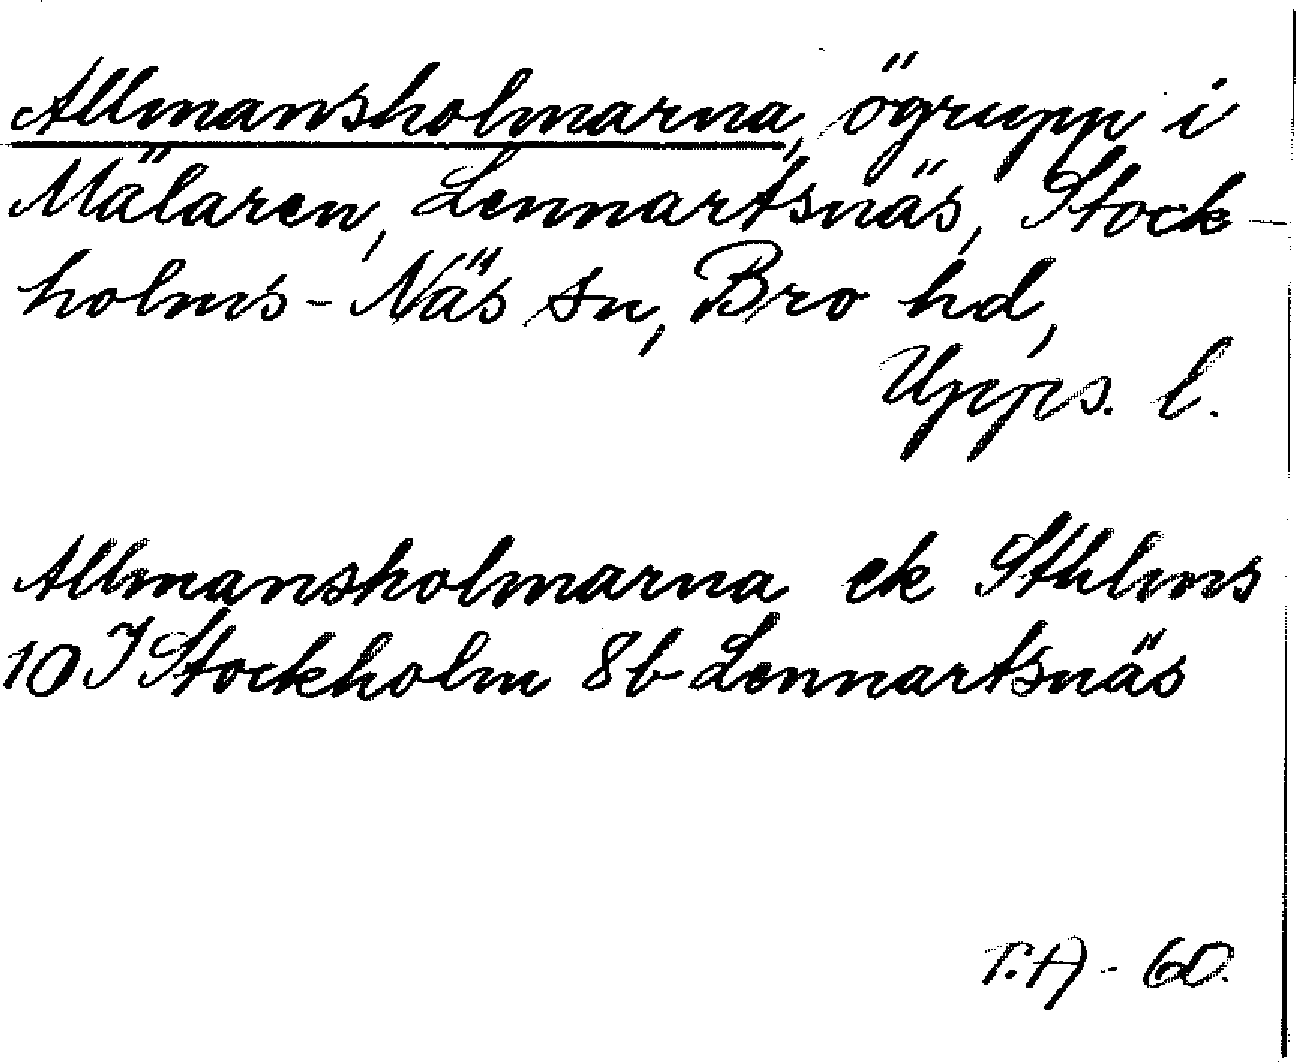 Allmansholmarna, ögrupp i
Mälaren, Lennartsnäs, Stock-
holms-Näs sn, Bro hd,
Upps. l.
Allmansholmarna ek Sthlms
10 I Stockholm 8b Lennartsnäs
T.A - 60.